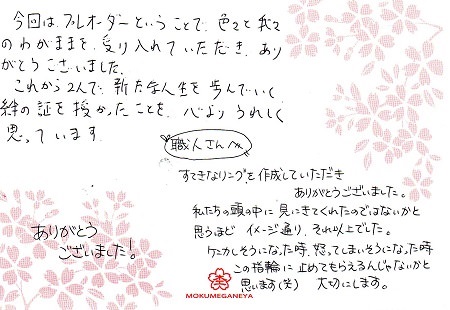 今回は、フルオーダーということで、色々と我々
のわがままを、受り入れていただき、あり
がとうございました。
これから2人で、新たな人生を歩んでいく
絆の証を授かったことを、心よりうれしく
思っています。
職人さんへ
すてきなリングを作成していただき
ありがとうございました。
私たちの頭の中に見にきてくれたのではないかと
思うほど イメージ通り、それ以上でした。
ケンカしそうになった時、怒ってしまいそうになった時
この指輪に止めてもらえるんじゃないかと
思います(笑) 大切にします。
ありがとう
ございました!
MOKUMEGANEYA